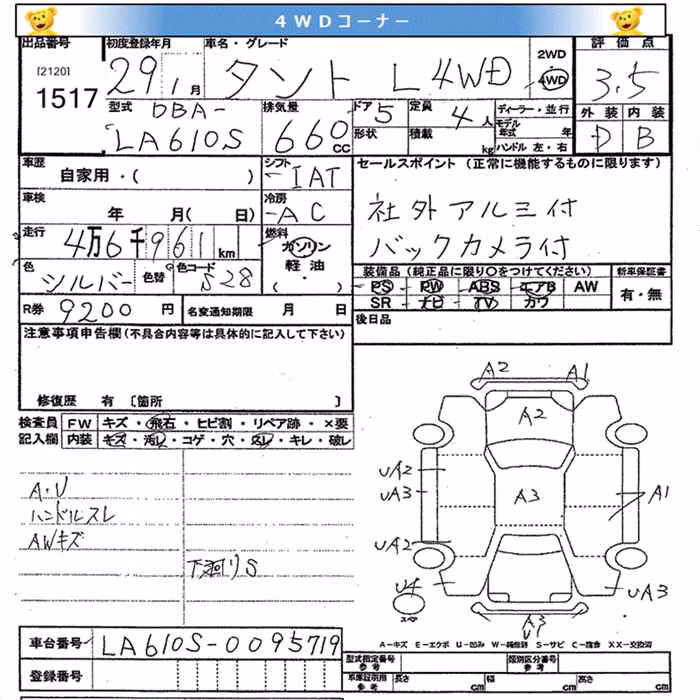 4WDコーナー
出品番号 初度登録年月 車名・グレード 2WD 評価点
[2120] 29年1月 タント L 4WD 4WD 3.5
1517
型式 DBA- 排気量 ドア 5 定員 4人 ディーラー・並行 外装 内装
LA610S 660cc 形状 積載 kg モデル年式 年 D B
ハンドル 左・右
車歴 シフト セールスポイント (正常に機能するものに限ります)
自家用・( ) IAT
車検 冷房 社外アルミ付
年 月( 日) AC
走行 4万6千961km 燃料 バックカメラ付
ガソリン
色 シルバー 色替 色コード S28 軽油 装備品(純正品に限り○をつけてください) 新車保証書
( ・ ) PS PW ABS エアB AW 有・無
R券 9200円 名変通知期限 月 日 SR ナビ TV カワ
注意事項申告欄(不具合内容等は具体的に記入して下さい) 後日品
修復歴 有 [箇所 ]
検査員 FW キズ・飛石・ヒビ割・リペア跡・×要
記入欄 内装 キズ・汚レ・コゲ・穴・スレ・キレ・破レ
A2 A1
A2
UA2
A・U UA3 A3 A1
ハンドルスレ
AWキズ UA2
下廻りS
U4 UA3
ス
A3
U1
A-キズ E-エクボ U-凹み W-補修跡 S-サビ C-腐食 XX-交換済
車台番号 LA610S-0095719
型式指定番号 参考 類別区分番号 参考
登録番号 車庫証明用 参考 長さ cm 幅 cm 高さ cm